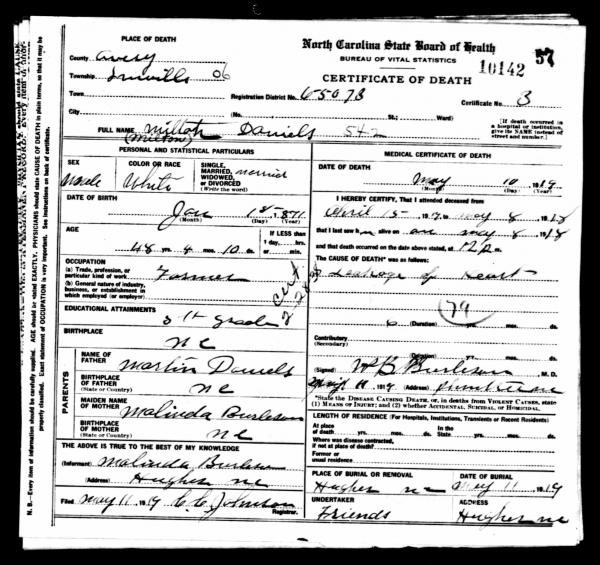 PLACE OF DEATH
County Avery
Township Linville 06
Town
City
North Carolina State Board of Health
BUREAU OF VITAL STATISTICS
10142 57
CERTIFICATE OF DEATH
Registration District No. 6-5073 Certificate No. 3
(No. St.; Ward)
[If death occurred in a hospital or institution, give its NAME instead of street and number.]
FULL NAME Milton Daniels 542
(Milton)
PERSONAL AND STATISTICAL PARTICULARS
SEX
Male
COLOR OR RACE
White
SINGLE, MARRIED, WIDOWED, or DIVORCED (Write the word)
married
DATE OF BIRTH
Jan 1st 1871
(Month) (Day) (Year)
AGE
48 yrs. 4 mos. 10 ds.
If LESS than 1 day, hrs. min.
OCCUPATION
(a) Trade, profession, or particular kind of work. Farmer
(b) General nature of industry, business, or establishment in which employed (or employer)
EDUCATIONAL ATTAINMENTS
5th grade
BIRTHPLACE
nc
PARENTS
NAME OF FATHER
Martin Daniels
BIRTHPLACE OF FATHER (State or Country)
nc
MAIDEN NAME OF MOTHER
Malinda Burleson
BIRTHPLACE OF MOTHER (State or Country)
nc
THE ABOVE IS TRUE TO THE BEST OF MY KNOWLEDGE
(Informant) Malinda Burleson
(Address) Hughes nc
Filed May 11 1919 C C Johnson
Registrar.
MEDICAL CERTIFICATE OF DEATH
DATE OF DEATH
May 10 1919
(Month) (Day) (Year)
I HEREBY CERTIFY, That I attended deceased from
April 15 191 to May 8 191
that I last saw h alive on May 8 1918
and that death occurred on the date above stated, at 12 p m.
The CAUSE OF DEATH* was as follows:
Leakage of Heart
79
(Duration) yrs. mos. ds.
Contributory
(Secondary)
(Duration) yrs. mos. ds.
(Signed) W B Burleson M. D.
11 1919 (Address)
*State the DISEASE CAUSING DEATH, or, in deaths from VIOLENT CAUSES, state (1) MEANS OF INJURY; and (2) whether ACCIDENTAL, SUICIDAL, or HOMICIDAL.
LENGTH OF RESIDENCE (For Hospitals, Institutions, Transients or Recent Residents)
At place of death yrs. mos. ds. In the State yrs. mos. ds.
Where was disease contracted, if not at place of death?
Former or usual residence
PLACE OF BURIAL OR REMOVAL
Hughes nc
DATE OF BURIAL
May 11 1919
UNDERTAKER
Friends
ADDRESS
Hughes nc
N. B.—Every item of information should be carefully supplied. AGE should be stated EXACTLY. PHYSICIANS should state CAUSE OF DEATH in plain terms, so that it may be properly classified. Exact statement of OCCUPATION is very important. See instructions on back of certificate.